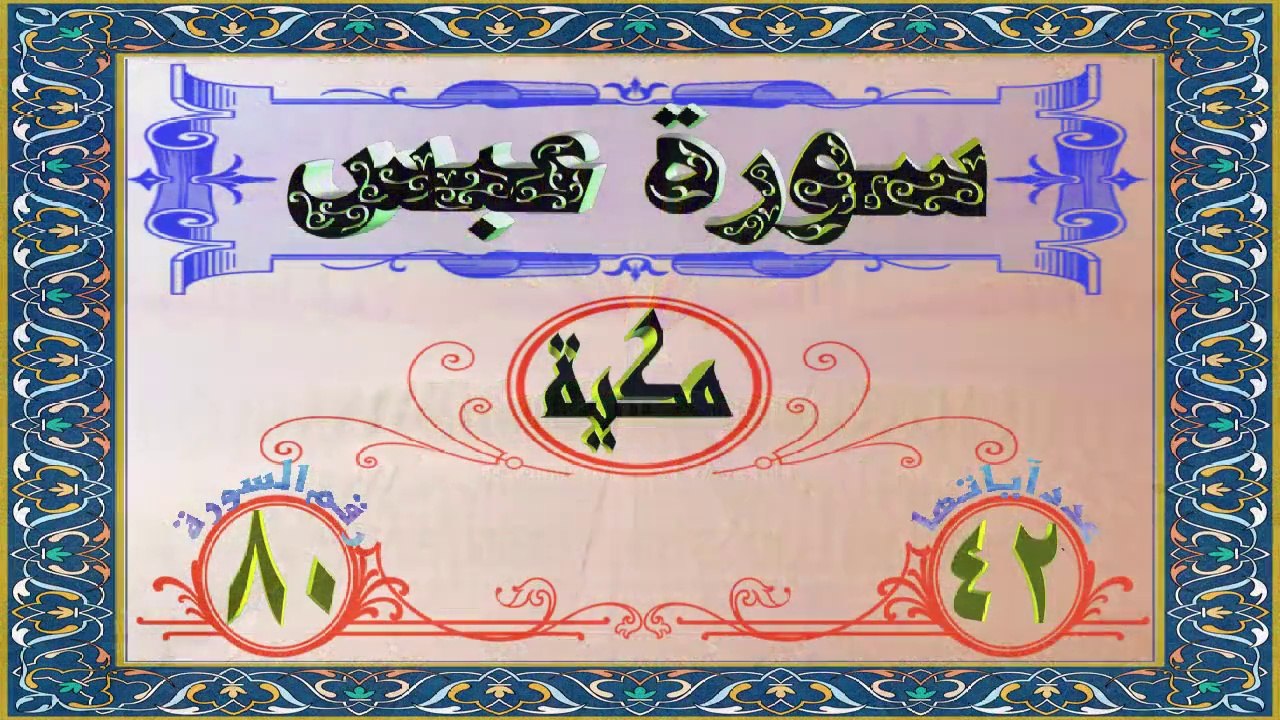 سورة عبس
مكية
عدد آياتها
٤٢
رقم السورة
٨٠